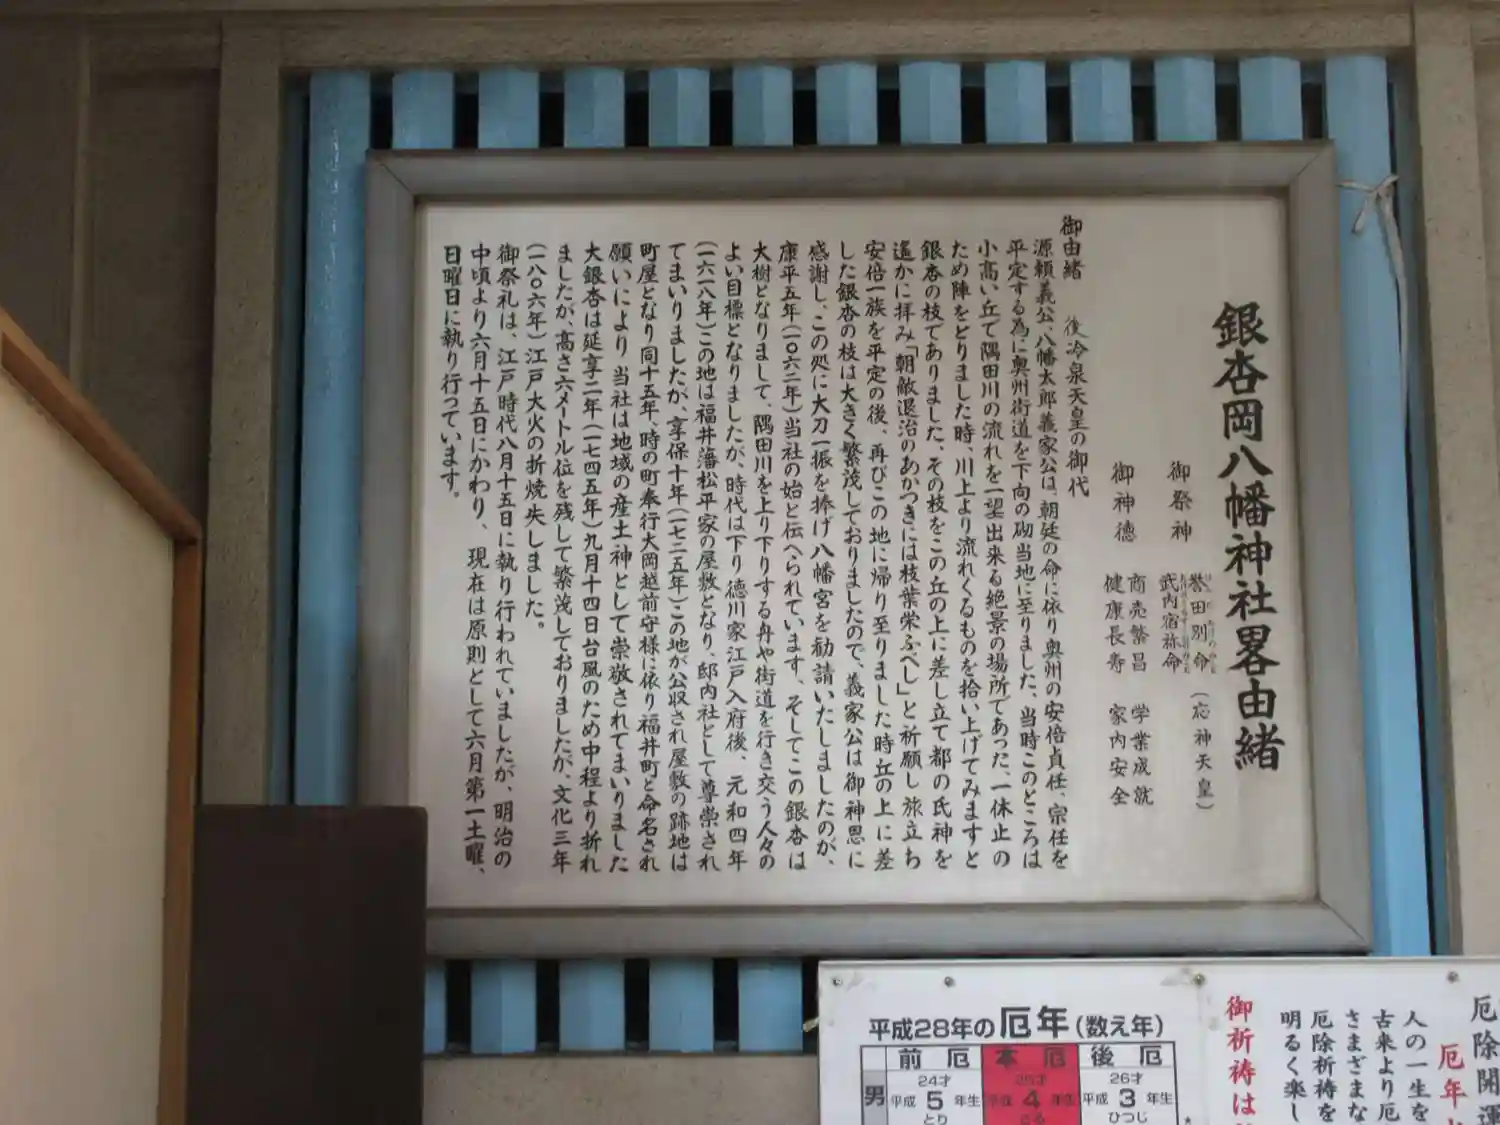 銀杏岡八幡神社畧由緒
御祭神
誉田別命(応神天皇)
武内宿祢命
御神徳
商売繁昌 学業成就
健康長寿 家内安全
御由緒 後冷泉天皇の御代
源頼義公、八幡太郎義家公は、朝廷の命に依り奥州の安倍貞任、宗任を
平定する為に奥州街道を下向の砌当地に至りました、当時このところは
小高い丘で隅田川の流れを一望出来る絶景の場所であった、一休止の
ため陣をとりました時、川上より流れくるものを拾い上げてみますと
銀杏の枝でありました、その枝をこの丘の上に差し立て都の氏神を
遥かに拝み「朝敵退治のあかつきには枝葉栄ふべし」と祈願し旅立ち
安倍一族を平定の後、再びこの地に帰り至りました時丘の上に差
した銀杏の枝は大きく繁茂しておりましたので、義家公は御神恩に
感謝し、この処に太刀一振を捧げ八幡宮を勧請いたしましたのが、
康平五年(一〇六二年)当社の始と伝へられています、そしてこの銀杏は
大樹となりまして、隅田川を上り下りする舟や街道を行き交う人々の
よい目標となりましたが、時代は下り徳川家江戸入府後、元和四年
(一六一八年)この地は福井藩松平家の屋敷となり、邸内社として尊崇され
てまいりましたが、享保十年(一七二五年)この地が公収され屋敷の跡地は
町屋となり同十五年、時の町奉行大岡越前守様に依り福井町と命名され
願いにより当社は地域の産土神として崇敬されてまいりました
大銀杏は延享二年(一七四五年)九月十四日台風のため中程より折れ
ましたが、高さ六メートル位を残して繁茂しておりましたが、文化三年
(一八〇六年)江戸大火の折焼失しました。
御祭礼は、江戸時代八月十五日に執り行われていましたが、明治の
中頃より六月十五日にかわり、現在は原則として六月第一土曜、
日曜日に執り行っています。
平成28年の厄年(数え年)
前厄 本厄 後厄
男
24才 25才 26才
平成5年生 平成4年生 平成3年生
とり さる ひつじ
厄除開運
厄年
人の一生を
古来より厄
さまざまな
厄除祈祷を
明るく楽し
御祈祷は